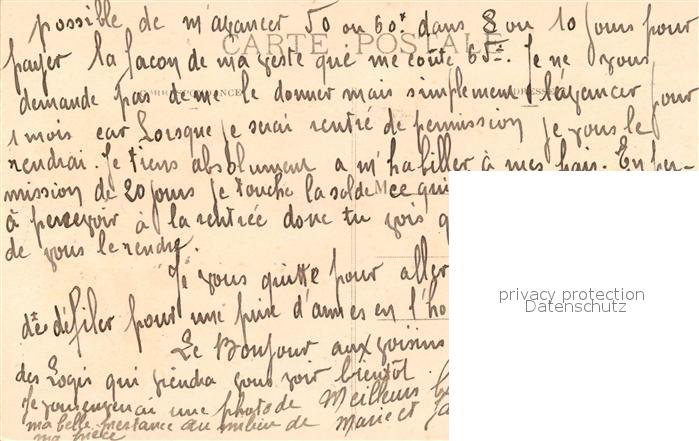 possible de m'avancer 50 ou 60f dans 8 ou 10 jours pour
CARTE POSTALE
payer la façon de ma veste que me coute 65f. Je ne vous
CORRESPONDANCE ADRESSE
demande pas de me le donner mais simplement l'avancer pour
1 mois car Lorsque je serai rentré de permission je vous le
rendrai. Je tiens absolument a m'habiller à mes frais. En per-
mission de 20 jours je touche la solde ce qui
M
à percevoir à la rentrée donc tu vois q
de vous le rendre.
Je vous quitte pour aller
défiler pour une prise d'armes en l'ho
Le Bonjour aux voisins
des Logis qui viendra vous voir bientôt.
Je vous enverrai une photo de Meilleurs b
ma belle prestance au milieu de Marie et
ma pièce
privacy protection
Datenschutz